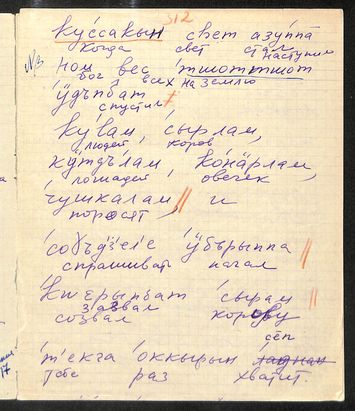 312
ку́ссакын свет азу́ппа
когда свет стал наступил
№3
ном вес тшоттшот
бог всех на землю
ӱ́дъпбат
спустил
ку́лам, сы́рлам,
людей, коров,
кӱ́тдълам, ко́на̄рлам,
лошадей, овечек
чушкалам, и
поросят,
собъдзе́ле ӱ́бърыппа
спрашивать начал
кwе́рыпбат сы́рам
зазвал
созвал корову
сеп
те́кга оккырын ладнан
тебе раз хватит.
17